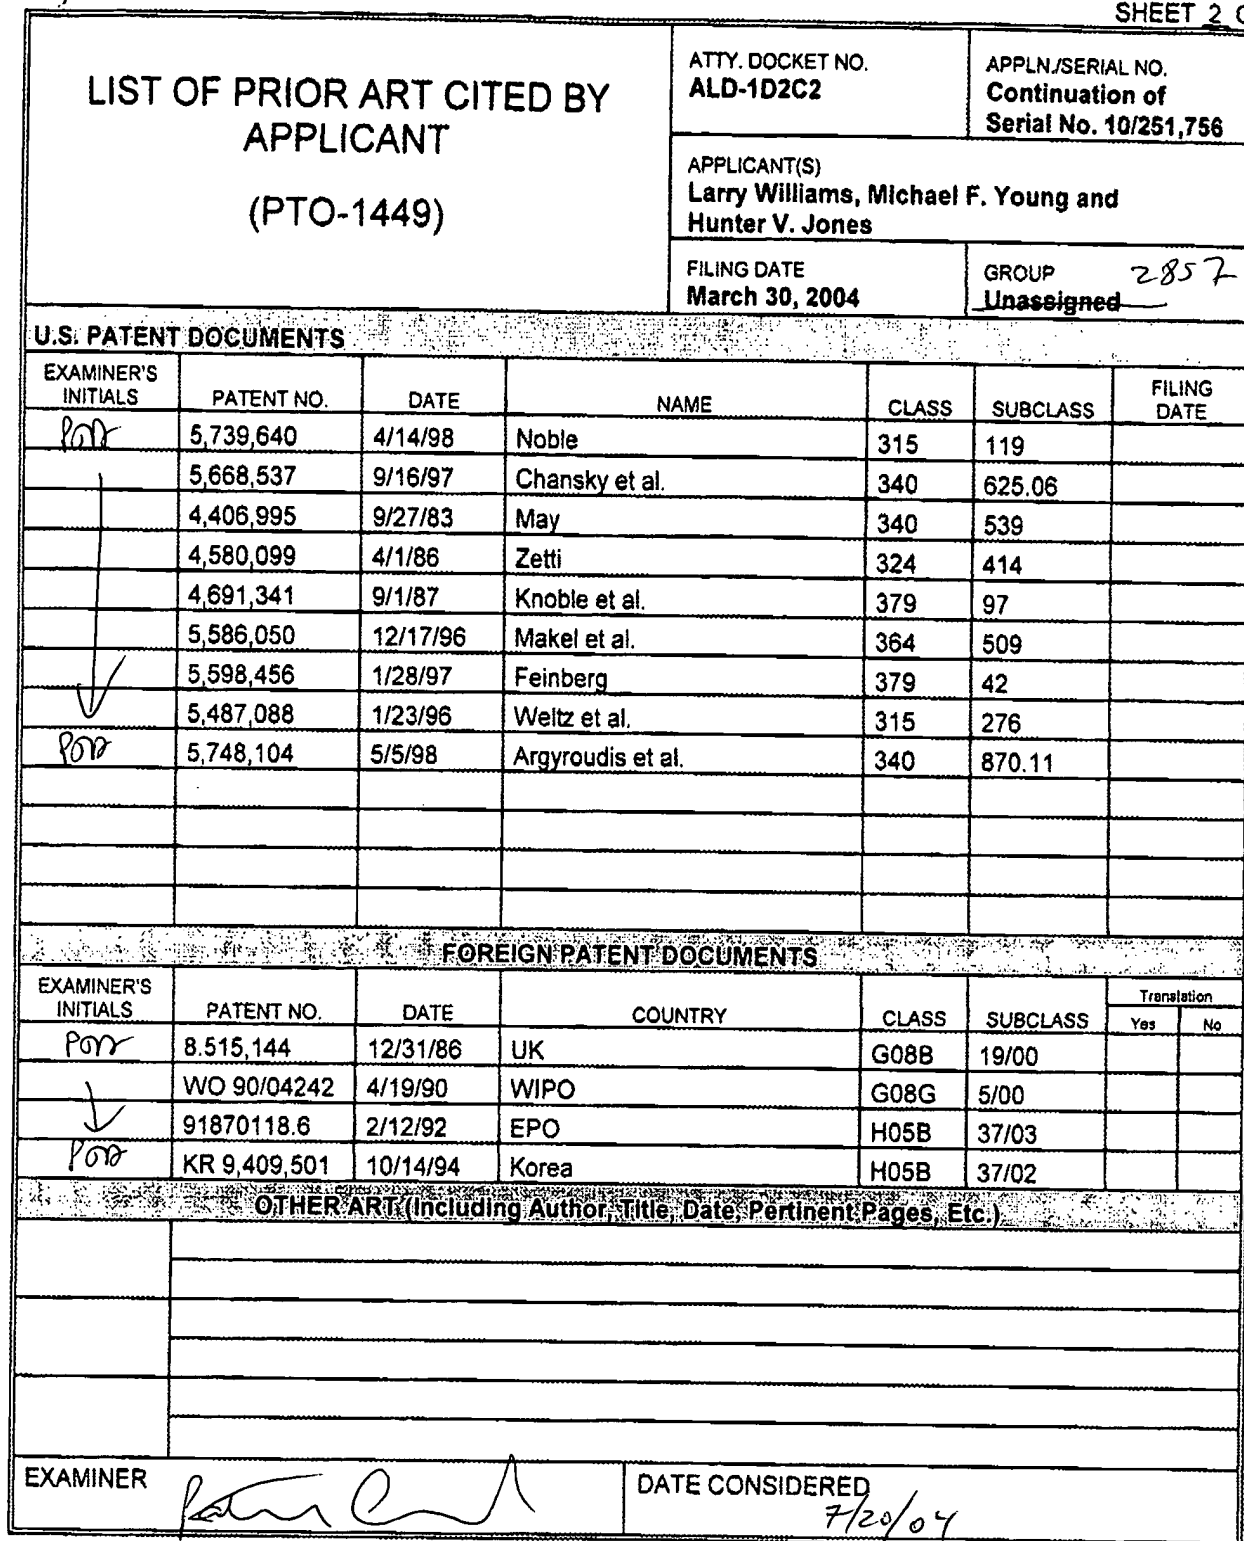 SHEET 2
LIST OF PRIOR ART CITED BY
APPLICANT
(PTO-1449)
ATTY. DOCKET NO.
ALD-1D2C2
APPLN./SERIAL NO.
Continuation of
Serial No. 10/251,756
APPLICANT(S)
Larry Williams, Michael F. Young and
Hunter V. Jones
FILING DATE
March 30, 2004
GROUP 2857
Unassigned
U.S. PATENT DOCUMENTS
EXAMINER'S INITIALS PATENT NO. DATE NAME CLASS SUBCLASS FILING DATE
5,739,640 4/14/98 Noble 315 119
5,668,537 9/16/97 Chansky et al. 340 625.06
4,406,995 9/27/83 May 340 539
4,580,099 4/1/86 Zetti 324 414
4,691,341 9/1/87 Knoble et al. 379 97
5,586,050 12/17/96 Makel et al. 364 509
5,598,456 1/28/97 Feinberg 379 42
5,487,088 1/23/96 Weltz et al. 315 276
5,748,104 5/5/98 Argyroudis et al. 340 870.11
FOREIGN PATENT DOCUMENTS
EXAMINER'S INITIALS PATENT NO. DATE COUNTRY CLASS SUBCLASS Translation Yes No
8.515,144 12/31/86 UK G08B 19/00
WO 90/04242 4/19/90 WIPO G08G 5/00
91870118.6 2/12/92 EPO H05B 37/03
KR 9,409,501 10/14/94 Korea H05B 37/02
OTHER ART (Including Author, Title, Date, Pertinent Pages, Etc.)
EXAMINER
DATE CONSIDERED
7/20/04